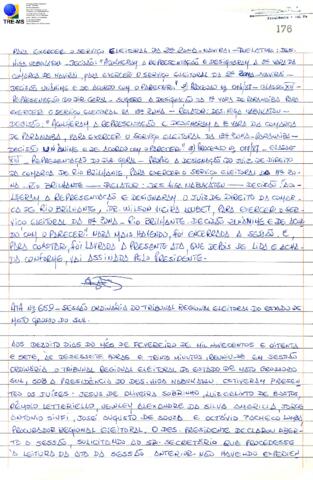 TRE-MS
176
PARA EXERCER O SERVIÇO ELEITORAL DA 2ª ZONA - NAVIRAÍ - RELATOR: DES.
HIGA NABUKATSU - DECISÃO: "ACOLHERAM A REPRESENTAÇÃO E DESIGNARAM A 2ª VARA DA
COMARCA DE NAVIRAÍ, PARA EXERCER O SERVIÇO ELEITORAL DA 2ª ZONA - NAVIRAÍ -
DECISÃO UNÂNIME E DE ACORDO COM O PARECER".
REPRESENTAÇÃO DO DES. GERAL - SUGERE A DESIGNAÇÃO DA 1ª VARA DE PARANAÍBA PARA
EXERCER O SERVIÇO ELEITORAL DA 13ª ZONA - RELATOR: DES. HIGA NABUKATSU -
DECISÃO: "ACOLHERAM A REPRESENTAÇÃO E DESIGNARAM A 1ª VARA DA COMARCA
DE PARANAÍBA, PARA EXERCER O SERVIÇO ELEITORAL DA 13ª ZONA - PARANAÍBA -
DECISÃO UNÂNIME E DE ACORDO COM O PARECER".
REPRESENTAÇÃO DO DES. GERAL - PARA A DESIGNAÇÃO DO JUIZ DE DIREITO
DA COMARCA DE RIO BRILHANTE, PARA EXERCER O SERVIÇO ELEITORAL DA ZO-
NA - RIO BRILHANTE - RELATOR - DES. HIGA NABUKATSU - DECISÃO: "ACO-
LHERAM A REPRESENTAÇÃO E DESIGNARAM O JUIZ DE DIREITO DA COMAR-
CA DE RIO BRILHANTE, DR. WILSON VIEIRA LOUBET, PARA EXERCER O SER-
VIÇO ELEITORAL DA ZONA - RIO BRILHANTE. DECISÃO UNÂNIME E DE ACOR-
DO COM O PARECER". NADA MAIS HAVENDO, FOI ENCERRADA A SESSÃO. E,
PARA CONSTAR, FOI LAVRADA A PRESENTE ATA, QUE DEPOIS DE LIDA E ACHA-
DA CONFORME, VAI ASSINADA PELO PRESIDENTE.
ATA Nº 659 - SESSÃO ORDINÁRIA DO TRIBUNAL REGIONAL ELEITORAL DO ESTADO DE
MATO GROSSO DO SUL.
AOS DEZOITO DIAS DO MÊS DE FEVEREIRO DE MIL NOVECENTOS E OITENTA
E SETE, ÀS DEZESSETE HORAS E TRINTA MINUTOS, REUNIU-SE EM SESSÃO
ORDINÁRIA O TRIBUNAL REGIONAL ELEITORAL DO ESTADO DE MATO GROSSO DO
SUL, SOB A PRESIDÊNCIA DO DES. HIGA NABUKATSU. ESTIVERAM PRESEN-
TES OS JUÍZES: JESUS DE OLIVEIRA SOBRINHO, LUIZ CALIXTO DE BASTOS,
RÊMOLO LETTERIELLO, HENLEY ALEXANDRE DA SILVA JORGE
ANTONIO SIUFI, JOSÉ AUGUSTO DE SOUZA E OCTÁVIO PACHECO LOMBA,
PROCURADOR REGIONAL ELEITORAL. O DES. PRESIDENTE DECLAROU ABER-
TA A SESSÃO, SOLICITANDO AO SR. SECRETÁRIO QUE PROCEDESSE
À LEITURA DA ATA DA SESSÃO ANTERIOR. NÃO HAVENDO EXPEDIEN